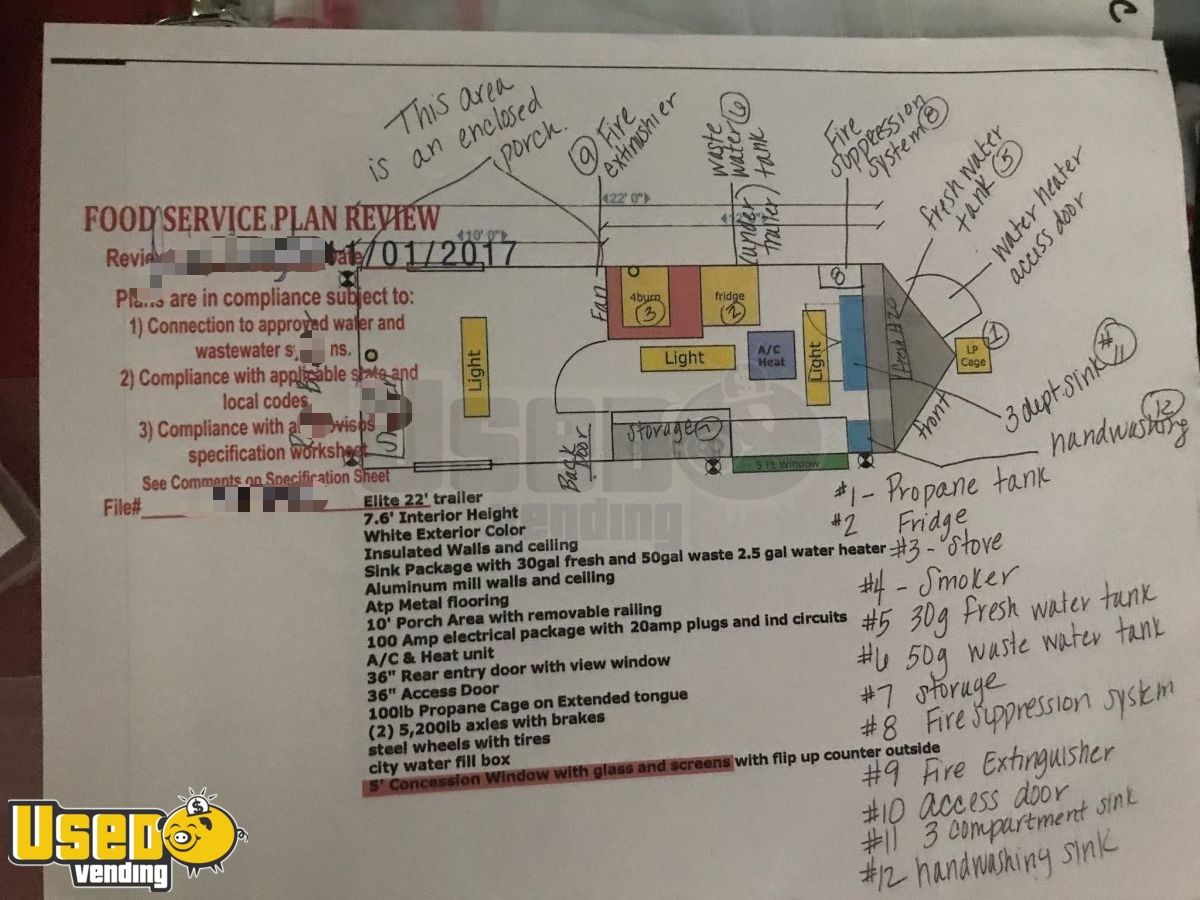 This area
is an enclosed
porch.
⑨ Fire
extinushier
waste
water ⑥
tank
(under
trailer)
Fire
Suppression
System ⑧
fresh water
tank ⑤
water heater
access door
22' 0"
10' 0"
FOOD SERVICE PLAN REVIEW
11/01/2017
Plans are in compliance subject to:
1) Connection to approved water and
wastewater
2) Compliance with applicable state and
local codes
3) Compliance with
specification worksheet
See Comments on Specification Sheet
File#
Fan
4burn
③
fridge
②
8
Light
Light
A/C
Heat
Light
Fresh H20
LP
Cage
①
#11
3 dept. sink
front
12
handwashing
Storage ⑦
Back
Door
5 ft Window
USED
vending
Elite 22' trailer
7.6' Interior Height
White Exterior Color
Insulated Walls and ceiling
Sink Package with 30gal fresh and 50gal waste 2.5 gal water heater
Aluminum mill walls and ceiling
Atp Metal flooring
10' Porch Area with removable railing
100 Amp electrical package with 20amp plugs and ind circuits
A/C & Heat unit
36" Rear entry door with view window
36" Access Door
100lb Propane Cage on Extended tongue
(2) 5,200lb axles with brakes
steel wheels with tires
city water fill box
5' Concession Window with glass and screens with flip up counter outside
#1 - Propane tank
#2 Fridge
#3 - Stove
#4 - Smoker
#5 30g fresh water tank
#6 50g waste water tank
#7 Storage
#8 Fire Suppression System
#9 Fire Extinguisher
#10 access door
#11 3 compartment sink
#12 handwashing sink
USED
vending